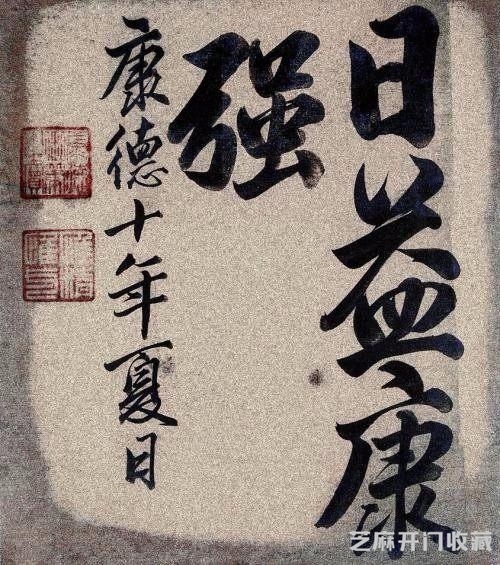 日益康
强
康德十年夏日
芝麻开门收藏